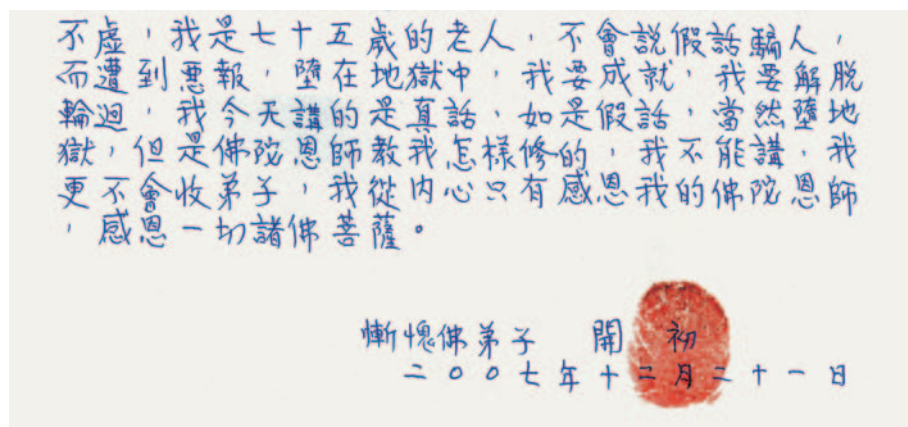 不虛，我是七十五歲的老人，不會説假話騙人，
而遭到惡報，墮在地獄中，我要成就，我要解脱
輪迴，我今天講的是真話，如是假話，當然墮地
獄，但是佛陀恩師教我怎樣修的，我不能講，我
更不會收弟子，我從内心只有感恩我的佛陀恩師
，感恩一切諸佛菩薩。
慚愧佛弟子 開 初
二００七年十二月二十一日